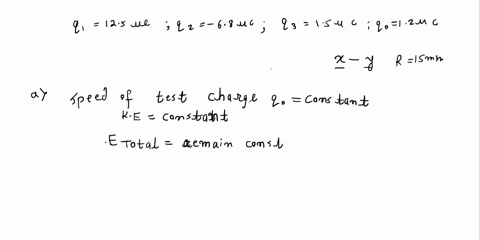 q₁ = 12.5 µc ; q₂ = -6.8 µc ; q₃ = 1.5 µc ; q₀ = 1.2 µc
x - y R = 15mm
a) speed of test charge q₀ = constant
K.E = constant
.E Total = remain const